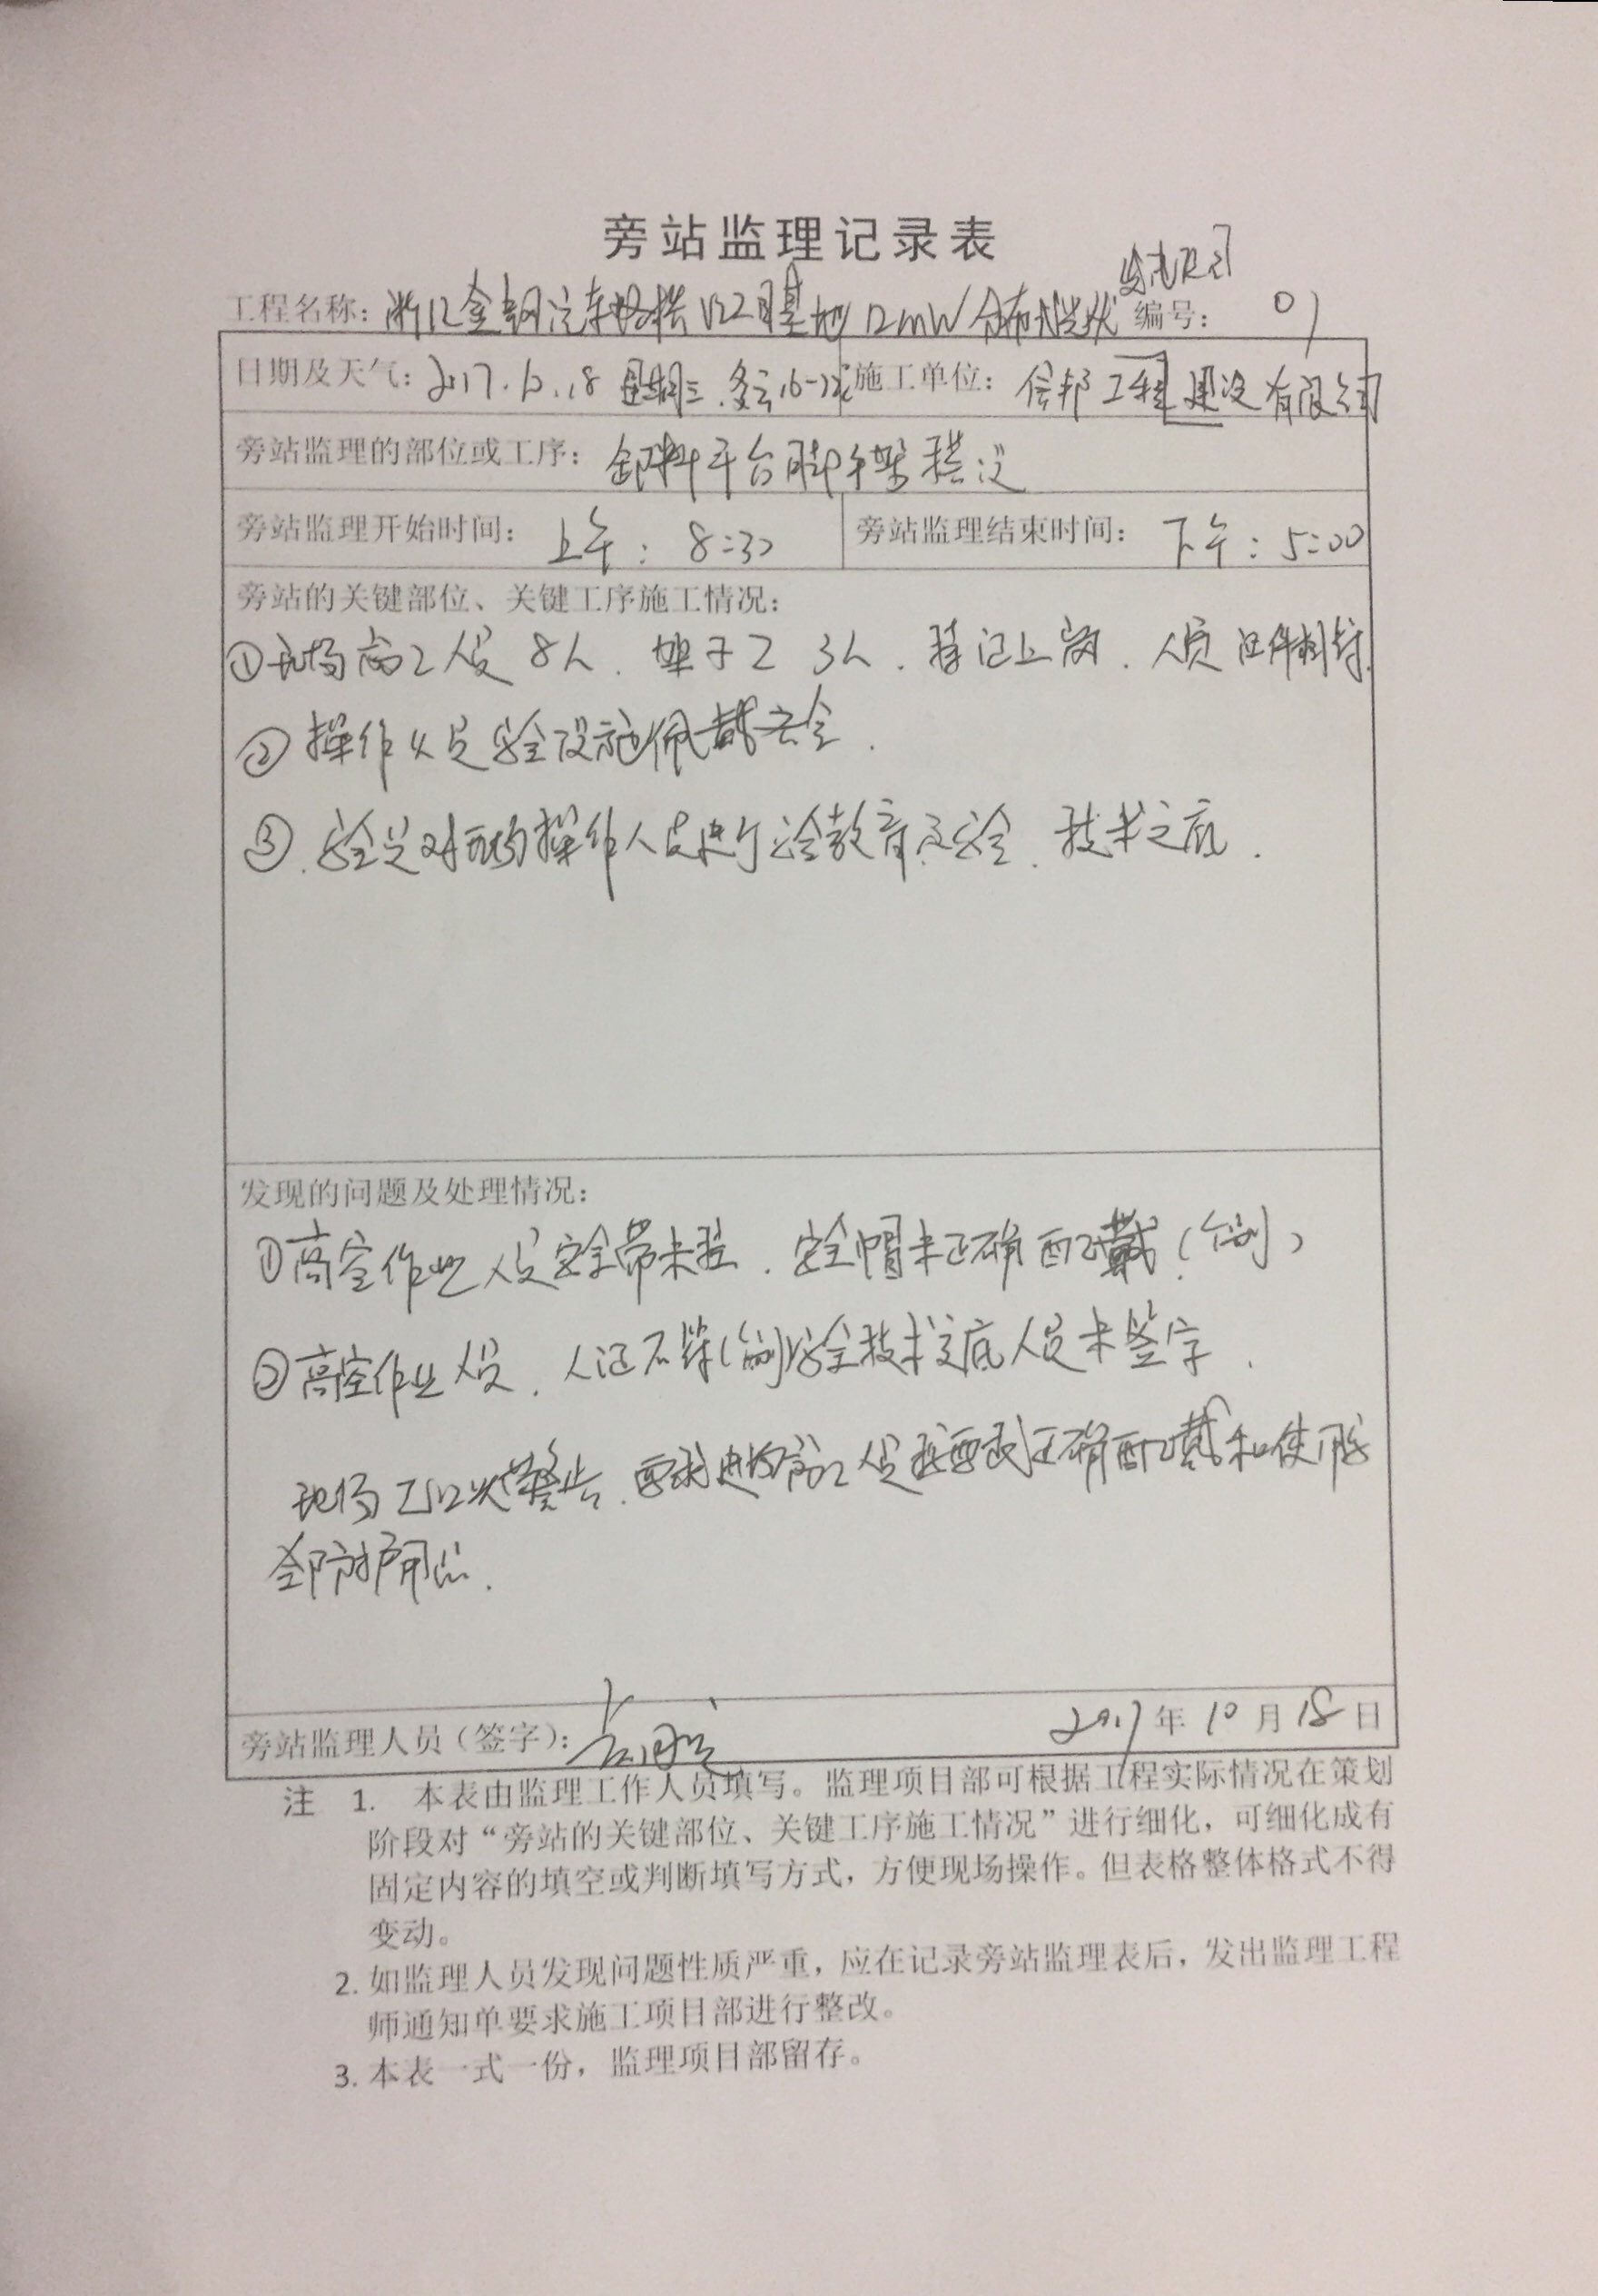 旁站监理记录表
工程名称：浙江金刚汽车 基地12mW分布式 编号：01
日期及天气：2017.10.18 星期三.多云16- 施工单位：信邦工程建设有限公司
旁站监理的部位或工序：卸料平台脚手架搭设
旁站监理开始时间：上午：8:30 旁站监理结束时间：下午：5:00
旁站的关键部位、关键工序施工情况：
①现场施工人员8人.架子工3人.持证上岗.人员证件
②操作人员安全设施佩戴安全.
③.安全员对现场操作人员进行安全教育及安全.技术交底.
发现的问题及处理情况：
①高空作业人员安全带未挂.安全帽未正确配戴(个别)
②高空作业人员.人证不符(个别)安全技术交底人员未签字.
现场予以 警告.要求进场施工人员按要求正确配戴和使用
全防护用品.
旁站监理人员（签字）： 2017年10月18日
注 1. 本表由监理工作人员填写。监理项目部可根据工程实际情况在策划
阶段对“旁站的关键部位、关键工序施工情况”进行细化，可细化成有
固定内容的填空或判断填写方式，方便现场操作。但表格整体格式不得
变动。
2. 如监理人员发现问题性质严重，应在记录旁站监理表后，发出监理工程
师通知单要求施工项目部进行整改。
3. 本表一式一份，监理项目部留存。